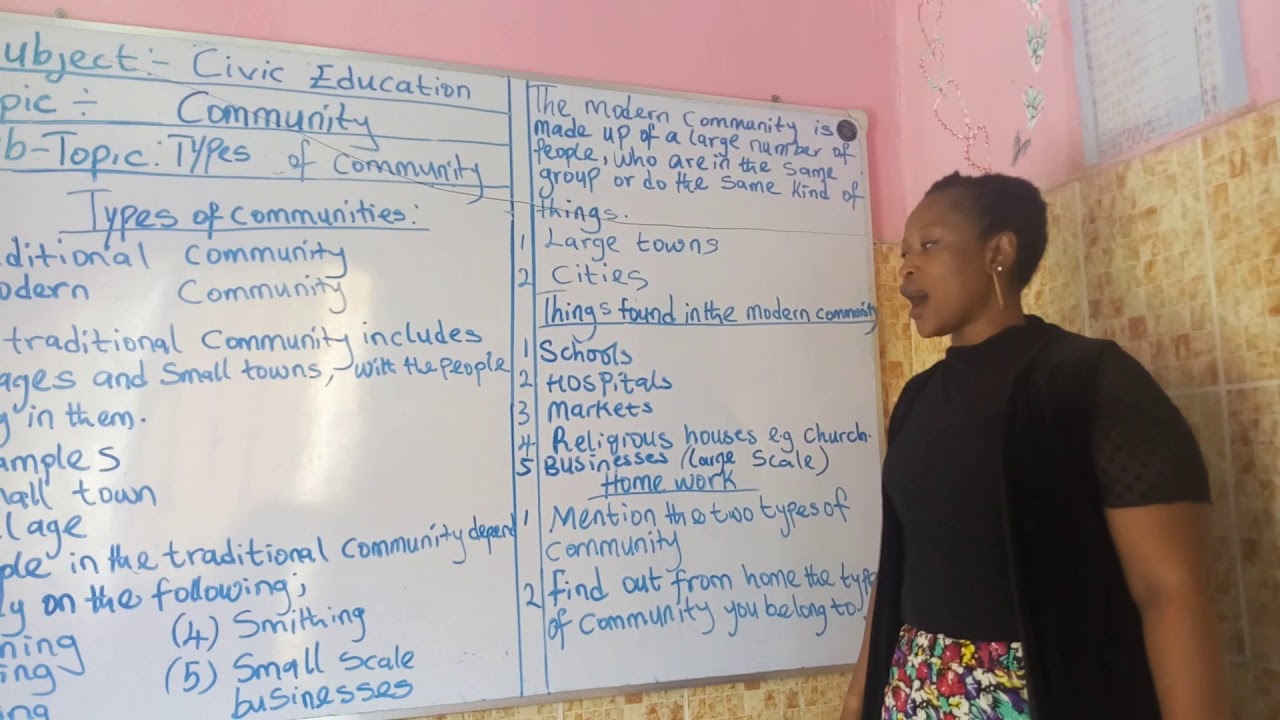 ubject:- Civic Education
pic ÷ Community
b-Topic: Types of community
Types of communities:
ditional Community
odern Community
traditional Community includes
ages and small towns, with the people
g in them.
amples
nall town
llage
ple in the traditional community depend
ly on the following;
ning (4) Smithing
ing (5) Small scale
ing businesses
The modern community is
made up of a large number of
people, who are in the same
group or do the same kind of
things.
1 Large towns
2 Cities
Things found in the modern community
1 Schools
2 Hospitals
3 markets
4 Religious houses e.g church.
5 Businesses (large scale)
Home work
1 Mention the two types of
community
2 find out from home the type
of community you belong to.